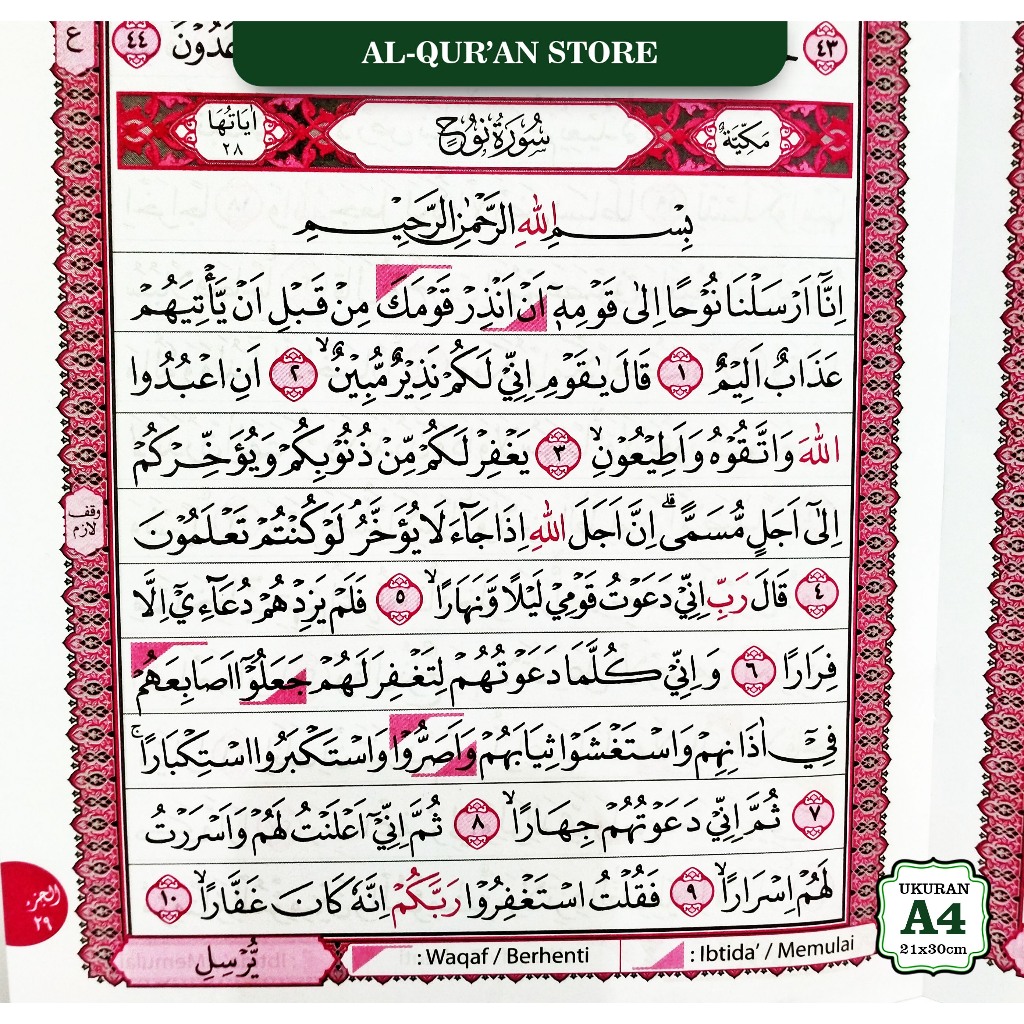 AL-QUR'AN STORE
٤٣
عَدُوْنَ ٤٤
ع
مَكِّيَّةٌ
سُوْرَةُ نُوْحٍ
اٰيَاتُهَا ٢٨
بِسْمِ اللهِ الرَّحْمٰنِ الرَّحِيْمِ
اِنَّآ اَرْسَلْنَا نُوْحًا اِلٰى قَوْمِهٖٓ اَنْ اَنْذِرْ قَوْمَكَ مِنْ قَبْلِ اَنْ يَّأْتِيَهُمْ
عَذَابٌ اَلِيْمٌ ١ قَالَ يٰقَوْمِ اِنِّيْ لَكُمْ نَذِيْرٌ مُّبِيْنٌۙ ٢ اَنِ اعْبُدُوا
اللهَ وَاتَّقُوْهُ وَاَطِيْعُوْنِۙ ٣ يَغْفِرْ لَكُمْ مِّنْ ذُنُوْبِكُمْ وَيُؤَخِّرْكُمْ
اِلٰٓى اَجَلٍ مُّسَمًّىۗ اِنَّ اَجَلَ اللهِ اِذَا جَاۤءَ لَا يُؤَخَّرُۘ لَوْ كُنْتُمْ تَعْلَمُوْنَ
وقف لازم
٤ قَالَ رَبِّ اِنِّيْ دَعَوْتُ قَوْمِيْ لَيْلًا وَّنَهَارًاۙ ٥ فَلَمْ يَزِدْهُمْ دُعَاۤءِيْٓ اِلَّا
فِرَارًا ٦ وَاِنِّيْ كُلَّمَا دَعَوْتُهُمْ لِتَغْفِرَ لَهُمْ جَعَلُوْٓا اَصَابِعَهُمْ
فِيْٓ اٰذَانِهِمْ وَاسْتَغْشَوْا ثِيَابَهُمْ وَاَصَرُّوْا وَاسْتَكْبَرُوا اسْتِكْبَارًاۚ
٧ ثُمَّ اِنِّيْ دَعَوْتُهُمْ جِهَارًاۙ ٨ ثُمَّ اِنِّيْٓ اَعْلَنْتُ لَهُمْ وَاَسْرَرْتُ
لَهُمْ اِسْرَارًاۙ ٩ فَقُلْتُ اسْتَغْفِرُوْا رَبَّكُمْ اِنَّهٗ كَانَ غَفَّارًاۙ ١٠
الجزء ٢٩
يُّرْسِلِ
: Waqaf / Berhenti
: Ibtida' / Memulai
UKURAN
A4
21x30cm